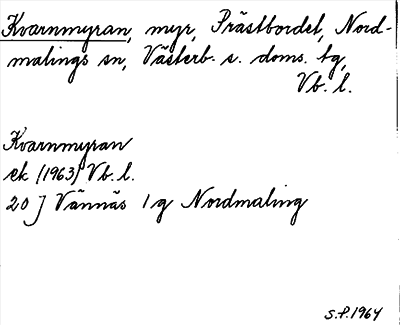 Kvarnmyran, myr, Prästbordet, Nord-
malings sn, Västerb. s. doms. tg,
Vb. l.
Kvarnmyran
ek (1963) Vb. l.
20 J Vännäs 1 g Nordmaling
S.P. 1964